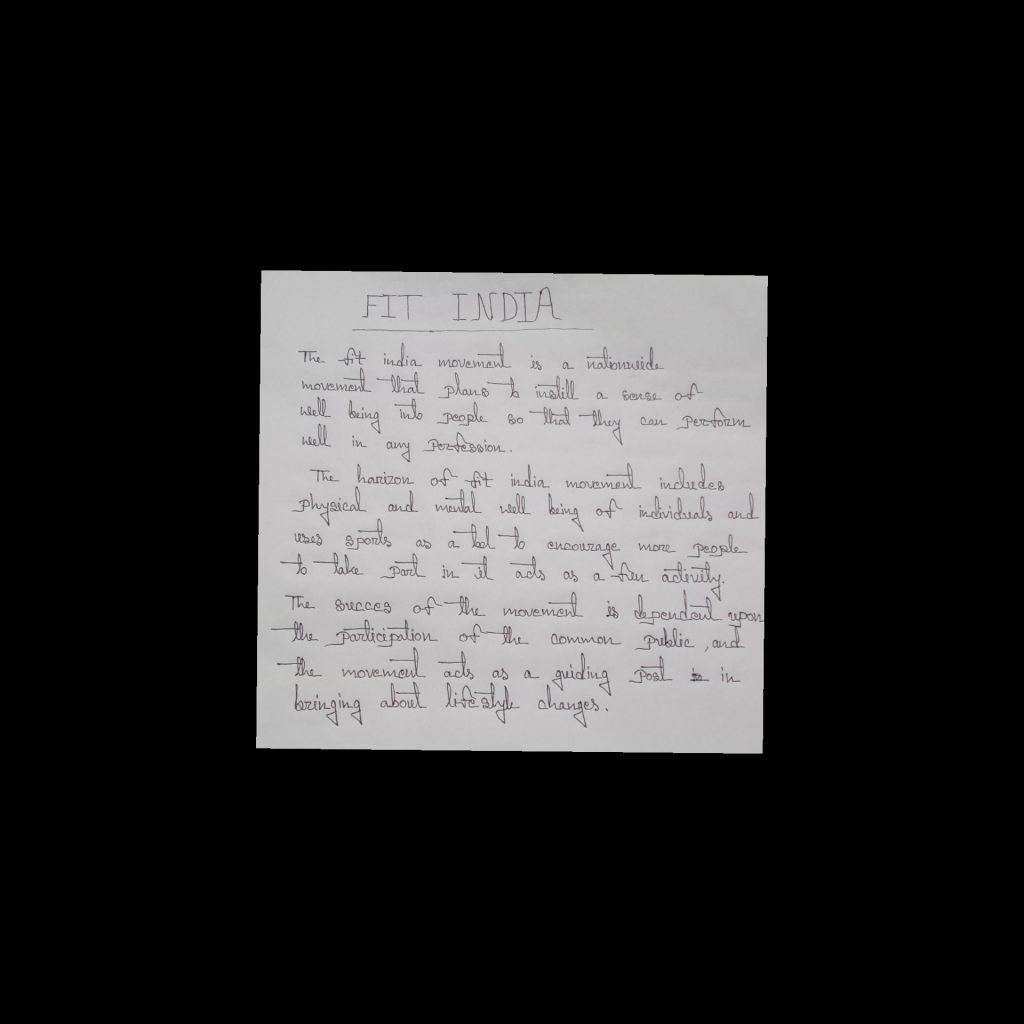 FIT INDIA
The fit india movement is a nationwide
movement that plans to instill a sense of
well being into people so that they can perform
well in any perfession.
The harizon of fit india movement includes
physical and mental well being of individuals and
uses sports as a tool to encourage more people
to take part in it acts as a fun activity.
The succes of the movement is dependent upon
the participation of the common public, and
the movement acts as a guiding post in
bringing about lifestyle changes.